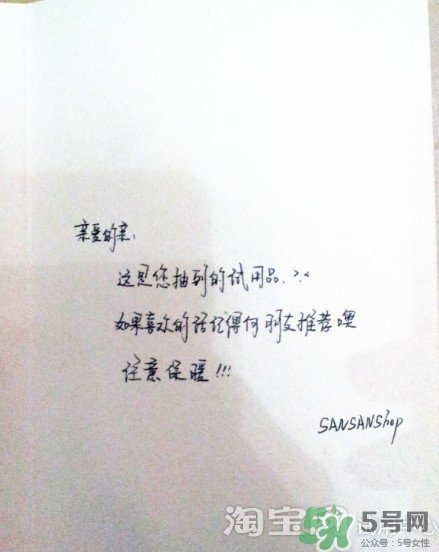 亲爱的亲:
这是您抽到的试用品.>.<
如果喜欢的话记得向朋友推荐噢
注意保暖!!!
SANSANShop
淘宝
5号网
公众号:5号女性